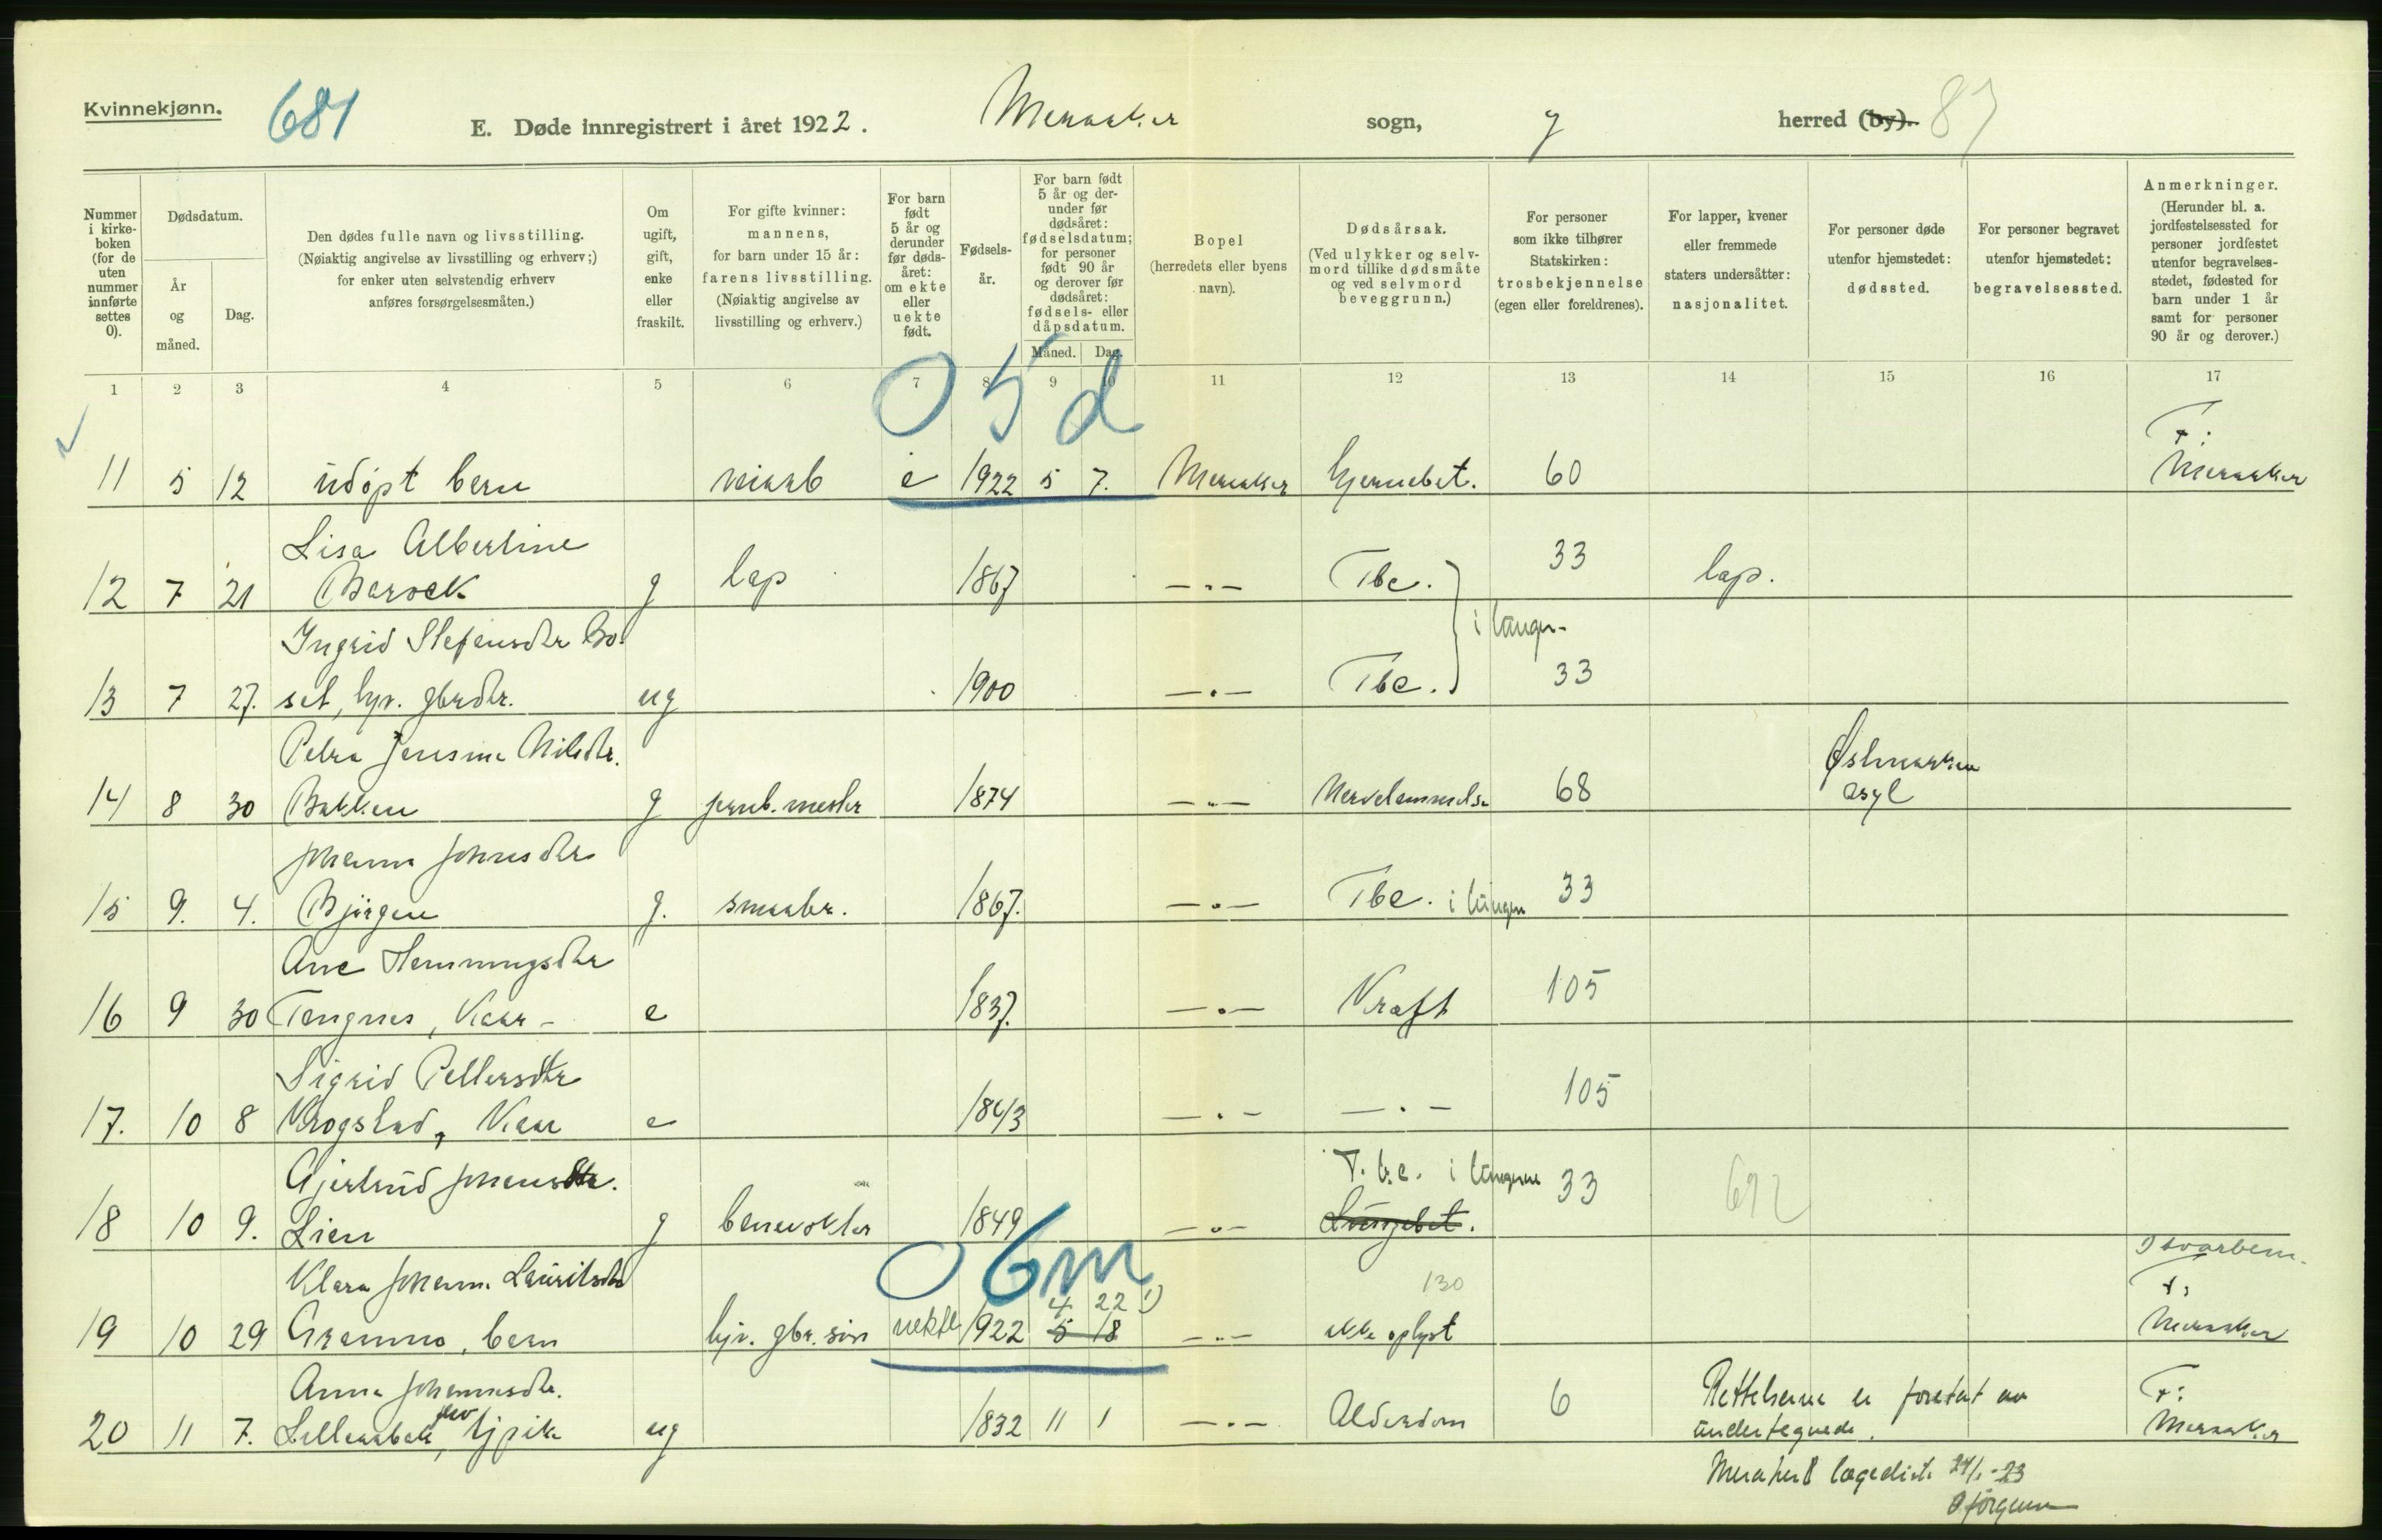 Kvinnekjønn.
681
E. Døde innregistrert i året 1922. Meraker sogn, herred (by). 87
Nummer i kirke-boken (for de uten nummer innførte settes 0).
Dødsdatum.
År og måned.
Dag.
Den dødes fulle navn og livsstilling.
(Nøiaktig angivelse av livsstilling og erhverv;)
for enker uten selvstendig erhverv
anføres forsørgelsesmåten.)
Om ugift, gift, enke eller fraskilt.
For gifte kvinner: mannens,
for barn under 15 år: farens livsstilling.
(Nøiaktig angivelse av livsstilling og erhverv.)
For barn født 5 år og derunder før døds-året: om ekte eller uekte født.
Fødsels-år.
For barn født 5 år og der-under før dødsåret: fødselsdatum; for personer født 90 år og derover før dødsåret: fødsels- eller dåpsdatum.
Måned. Dag.
Bopel
(herredets eller byens navn).
Dødsårsak.
(Ved ulykker og selv-mord tillike dødsmåte og ved selvmord beveggrunn.)
For personer som ikke tilhører Statskirken: trosbekjennelse (egen eller foreldrenes).
For lapper, kvener eller fremmede staters undersåtter: nasjonalitet.
For personer døde utenfor hjemstedet: dødssted.
For personer begravet utenfor hjemstedet: begravelsessted.
Anmerkninger.
(Herunder bl. a. jordfestelsessted for personer jordfestet utenfor begravelses-stedet, fødested for barn under 1 år samt for personer 90 år og derover.)
1 2 3 4 5 6 7 8 9 10 11 12 13 14 15 16 17
0 5 d
F:
11 5 12 udøpt barn veiarb e 1922 5 7. Meraker hjernebet. 60 Meraker
Lisa Albertine
12 7 21 Barock g lap 1867 —„— Tbc. 33 lap.
i lunger
Ingrid Stefensdtr Bo-
13 7 27. set, hjv. gbrdtr. ug 1900 —„— Tbc. 33
Petra Jensine Nilsdtr. Østmarken
14 8 30 Bakken g jernb.mester 1874 —„— Nervelammelse 68 asyl
Johanna Johnsdtr
15 9. 4. Bjørgen g. smaabr. 1867. —„— Tbc. i lungen 33
Ane Hemmingsdtr
16 9 30 Tengnes, Kaar - e 1837. —„— Kræft 105
Sigrid Pettersdtr
17. 10 8 Krogstad, Kaar e 1843 —„— —„— 105
Gjertrud Johansdtr. T.b.c. i lungerne
18 10 9. Lien g banevokter 1849 —„— Lungebet. 33 692
0 6m
Klara Johanna Lauritsdtr 4 22 1) 130 F:
19 10 29 Gramno, barn hjv. gbr. søn uekte 1922 5 18 —„— ikke oplyst Meraker
Anna Johannesdtr. Rettelserne er foretat av F:
20 11 7. ug 1832 11 1 —„— Alderdom 6 undertegnede. Meraker
Meraker lægedistr. 24/1-23